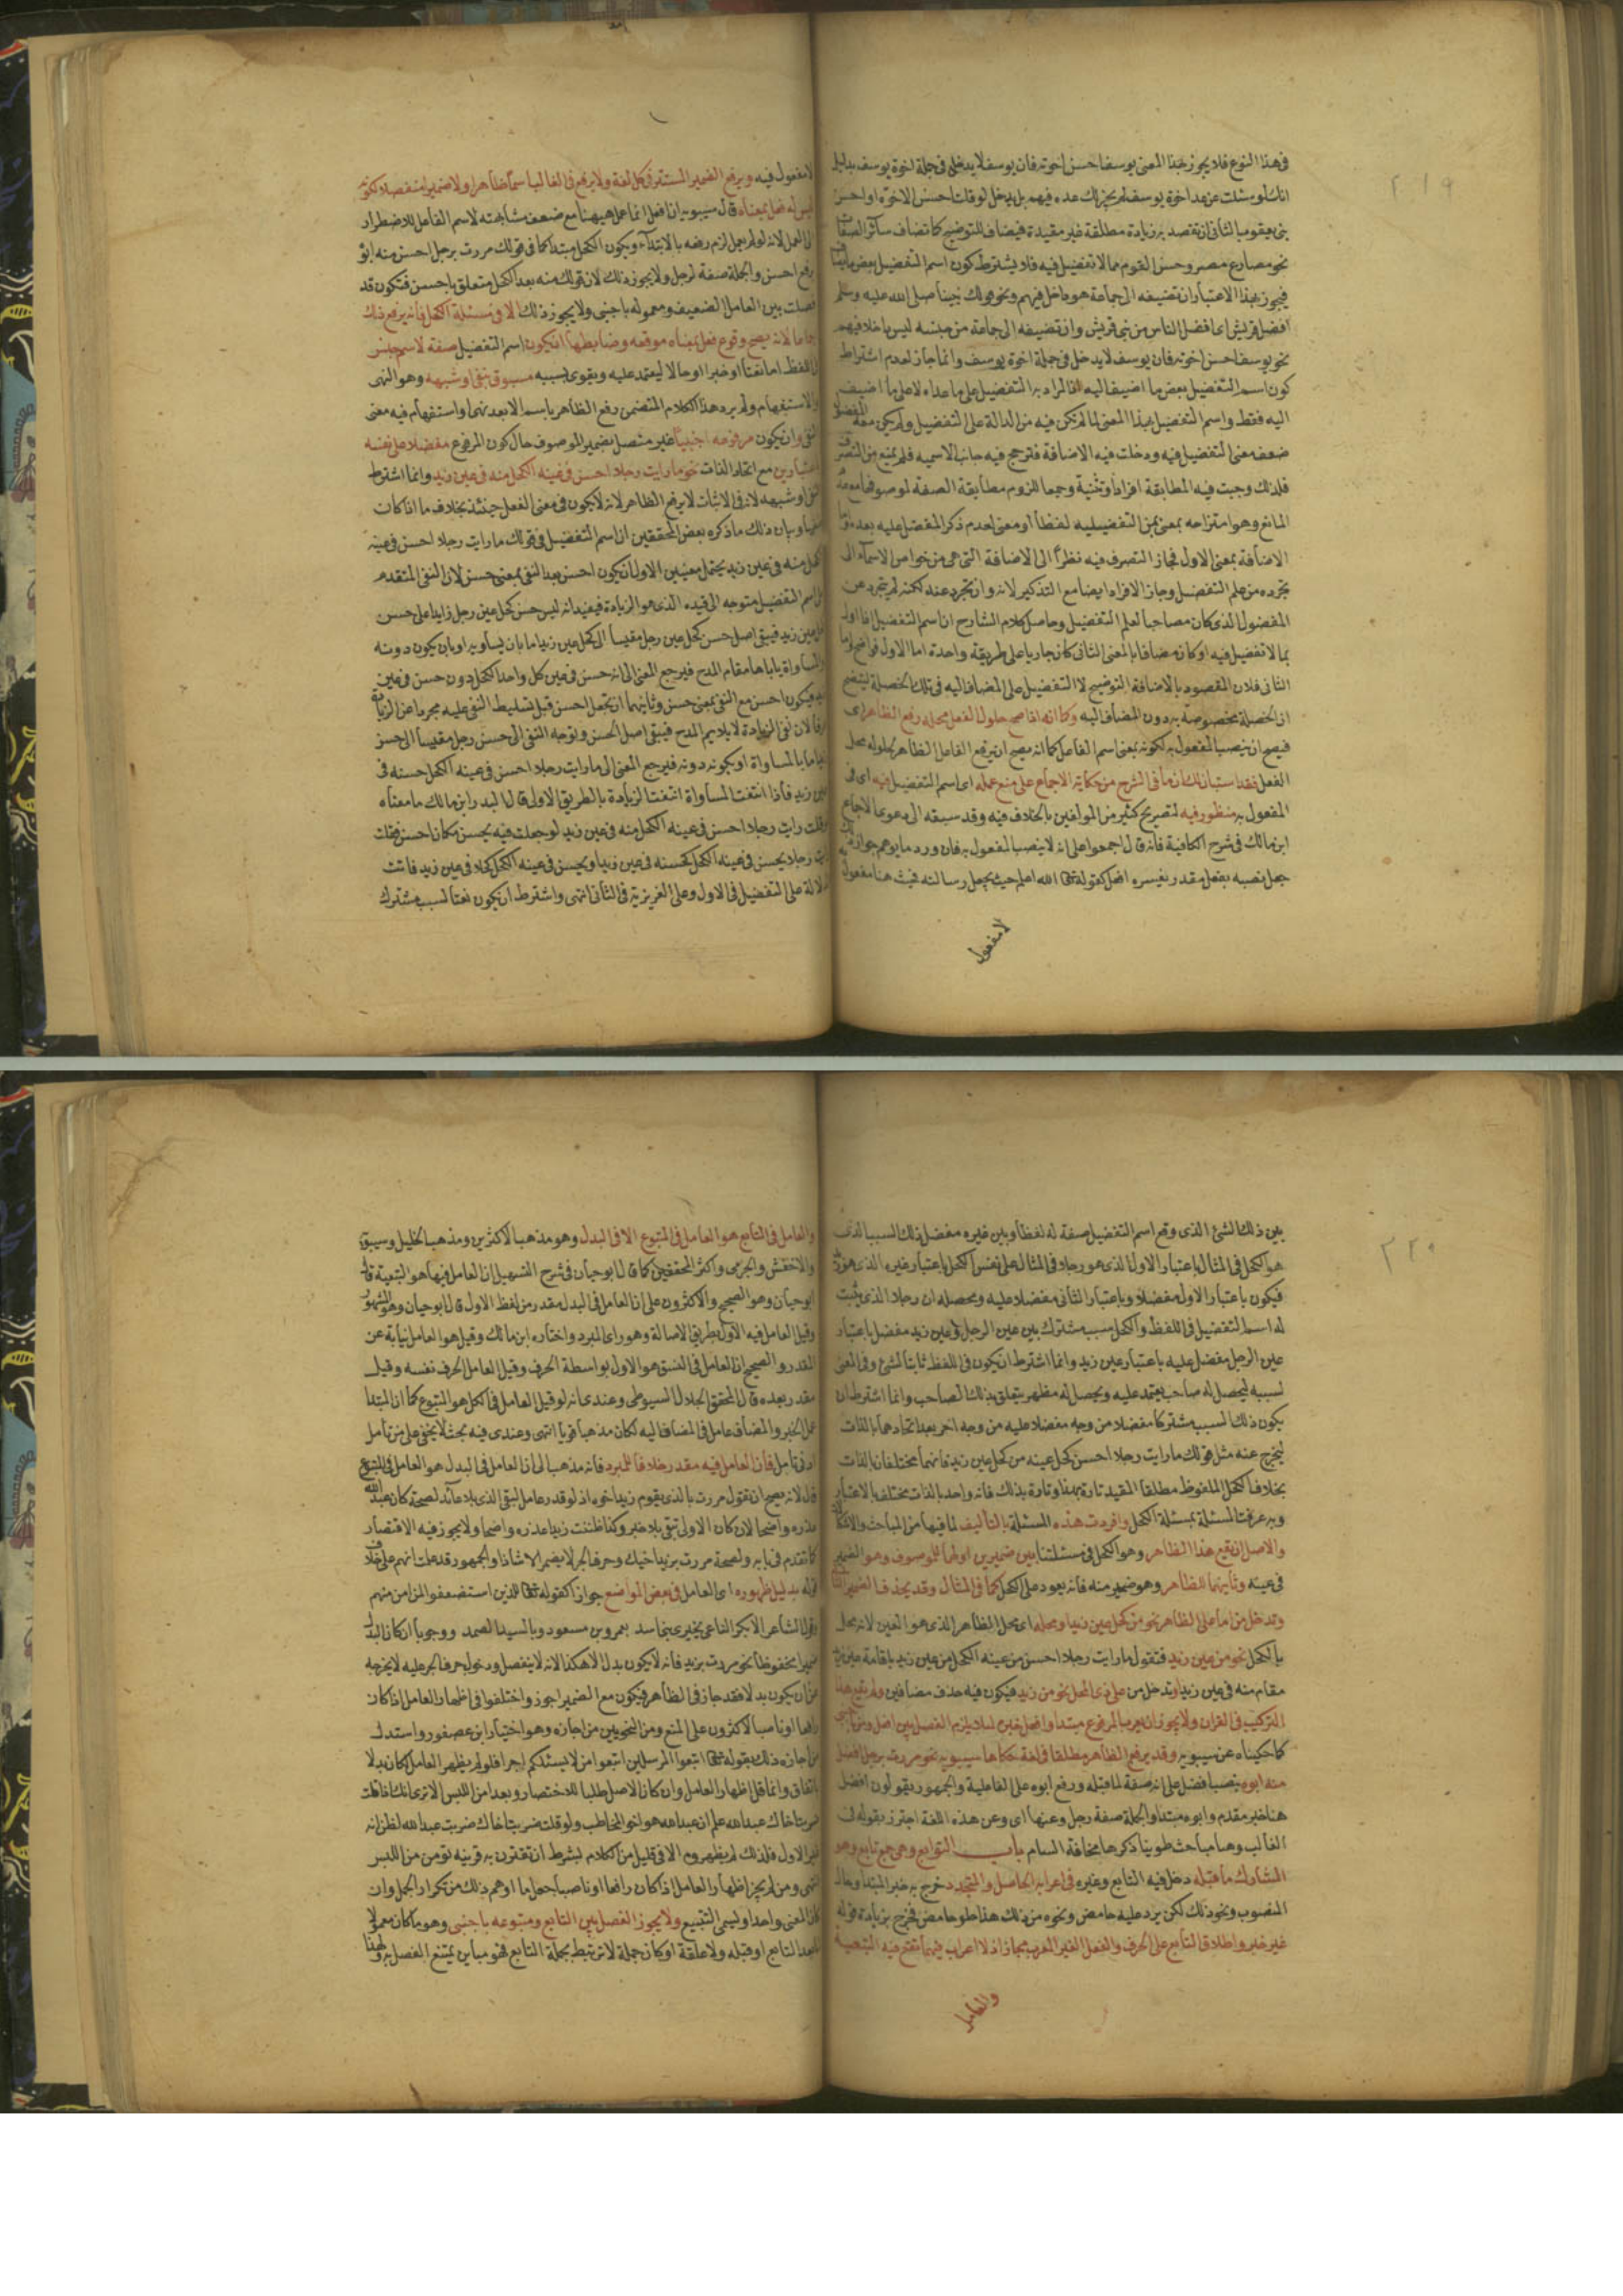 ٢١٩
فى هذا النوع فلا يجوز بهذا المعنى يوسف احسن اخوته فان يوسف لا يدخل فى جملة اخوة يوسف بدليل
انك لو سئلت عن عدد اخوة يوسف لم يجز لك عده فيهم بل يدخل لو قلت احسن الاخوة او احسن
بنى يعقوب الثانى ان تقصد به زيادة مطلقة غير مقيدة فيضاف للتوضيح كما تضاف سائر الصفات
نحو مصارع مصر وحسن القوم مما لا تفضيل فيه فلا يشترط كون اسم التفضيل بعض
فيجوز بهذا الاعتبار ان تضيفه الى جماعة هو داخل فيهم ونحو قولك نبينا صلى الله عليه وسلم
افضل قريش اى افضل الناس من بنى قريش وان تضيفه الى جماعة من جنسه ليس داخلا فيهم
نحو يوسف احسن اخوته فان يوسف لا يدخل فى جملة اخوة يوسف وانما جاز لعدم اشتراط
كون اسم التفضيل بعض ما اضيف اليه اذ المراد به التفضيل على ما عداه لا على ما اضيف
اليه فقط واسم التفضيل بهذا المعنى لما لم تكن فيه من الدلالة على التفضيل ولم يجئ معه المفضل
ضعف معنى التفضيل فيه ودخلت فيه الاضافة فترجح فيه جانب الاسمية فلم يمنع من التصرف
فلذلك وجبت فيه المطابقة افرادا وتثنية وجمعا للزوم مطابقة الصفة لموصوفها مع عدم
المانع وهو امتزاجه بمعنى من التفضيلية لفظا او معنى لعدم ذكر المفضل عليه بعده
الاضافة بمعنى الاول فجاز التصرف فيه نظرا الى الاضافة التى هى من خواص الاسماء الى
تجرده من علم التفضيل وجاز الافراد ايضا مع التذكير لانه وان تجرد عنه لكنه لم يتجرد عن
المفضول الذى كان مصاحبا لعلم التفضيل وحاصل كلام الشارح ان اسم التفضيل اذا اول
بما لا تفضيل فيه او كان مضافا بالمعنى الثانى كان جاريا على طريقة واحدة اما الاول فواضح واما
الثانى فلان المقصود بالاضافة التوضيح لا التفضيل على المضاف اليه فى تلك الخصلة ليتضح
ان الخصلة مخصوصة به دون المضاف اليه وكما انه اذا صح حلول الفعل محله رفع الظاهر اى
فيصح ان ينصب المفعول به لكونه بمعنى اسم الفاعل كما انه يصح ان يرفع الفاعل الظاهر بحلوله محل
الفعل فقد استبان لك ان ما فى الشرح من حكاية الاجماع على منع عمله اى اسم التفضيل فيه اى فى
المفعول به منظور فيه لتصريح كثير من المولفين بالخلاف فيه وقد سبقه الى دعوى الاجماع
ابن مالك فى شرح الكافية فانه قال اجمعوا على انه لا ينصب المفعول به فان ورد ما يوهم جواز ذلك
جعل نصبه بفعل مقدر يفسره افعل كقوله تعالى الله اعلم حيث يجعل رسالته فحيث هنا مفعول
لا مفعول
لا مفعول فيه ويرفع الضمير المستتر فى كل لغة ولا يرفع فى الغالب اسما ظاهرا ولا ضميرا منفصلا لكونه
ليس له فعل بمعناه قال سيبويه ان افعل انما عمل هيهنا مع ضعف مشابهته لاسم الفاعل للاضطرار
الى العمل لانه لو لم يعمل لزم رفعه بالابتداء ويكون الكحل مبتدا كما فى قولك مررت برجل احسن منه ابوه
برفع احسن والجملة صفة لرجل ولا يجوز ذلك لان قولك منه بعد الكحل متعلق باحسن فتكون قد
فصلت بين العامل الضعيف ومعموله باجنبى ولا يجوز ذلك الا فى مسئلة الكحل فانه يرفع ذلك
لانه يصح وقوع فعل بمعناه موقعه وضابطها ان يكون اسم التفضيل صفة لاسم جنس
فى اللفظ اما نعتا او خبرا او حالا ليعتمد عليه ويقوى بسببه مسبوق بنفى او شبهه وهو النهى
والاستفهام ولم يرد هذا الكلام المتضمن رفع الظاهر باسم الا بعد نهى او استفهام فيه معنى
النفى وان يكون مرفوعه اجنبيا غير متصل بضمير الموصوف حال كون المرفوع مفضلا على نفسه
باعتبارين مع اتحاد الذات نحو ما رايت رجلا احسن فى عينه الكحل منه فى عين زيد وانما اشترط
النفى او شبهه لانه فى الاثبات لا يرفع الظاهر لانه لا يكون فى معنى الفعل حينئذ بخلاف ما اذا كان
منفيا وبيان ذلك ما ذكره بعض المحققين ان اسم التفضيل فى قولك ما رايت رجلا احسن فى عينه
الكحل منه فى عين زيد يحتمل معنيين الاول ان يكون احسن بعد النفى بمعنى حسن لان النفى المتقدم
على اسم التفضيل متوجه الى قيده الذى هو الزيادة فيفيد انه ليس حسن كحل عين رجل زايدا على حسن
كحل عين زيد فيبقى اصل حسن كحل عين رجل مقيسا الى كحل عين زيد اما بان يساويه او بان يكون دونه
والمساواة ياباها مقام المدح فيرجع المعنى الى انه حسن فى عين كل واحد الكحل دون حسن فى عين
زيد فيكون احسن مع النفى بمعنى حسن وثانيهما ان تجعل احسن قبل تسليط النفى عليه مجردا عن الزيادة
عرفا لان نفى الزيادة لا يلايم المدح فيبقى اصل الحسن وتوجه النفى الى حسن رجل مقيسا الى حسن
زيد اما بالمساواة او بكونه دونه فيرجع المعنى الى ما رايت رجلا احسن فى عينه الكحل حسنه فى
عين زيد فاذا انتفت المساواة انتفت الزيادة بالطريق الاولى قال البدر ابن مالك ما معناه
لو قلت رايت رجلا احسن فى عينه الكحل منه فى عين زيد لو جعلت فيه يحسن مكان احسن فقلت
رايت رجلا يحسن فى عينه الكحل كحسنه فى عين زيد او يحسن فى عينه الكحل كحلا فى عين زيد فاتت
الدلالة على التفضيل فى الاول وعلى الغريزية فى الثانى انتهى واشترط ان يكون نعتا لسبب مشترك
٢٢٠
بين ذلك الشئ الذى وقع اسم التفضيل صفة له لفظا وبين غيره مفضل ذلك السبب الذى
هو الكحل فى المثال باعتبار الاول الذى هو رجلا فى المثال على نفس الكحل باعتبار غيره الذى هو زيد
فيكون باعتبار الاول مفضلا وباعتبار الثانى مفضلا عليه ومحصله ان رجلا الذى يثبت
له اسم التفضيل فى اللفظ والكحل سبب مشترك بين عين الرجل وبين عين زيد مفضل باعتبار
عين الرجل مفضل عليه باعتبار عين زيد وانما اشترط ان يكون فى اللفظ ثابتا لشئ وفى المعنى
لسببه ليحصل له صاحب يعتمد عليه ويحصل له مظهر يتعلق بذلك الصاحب وانما اشترط ان
يكون ذلك السبب مشتركا مفضلا من وجه مفضلا عليه من وجه اخر بعد اتحادهما بالذات
ليخرج عنه مثل قولك ما رايت رجلا احسن كحل عينه من كحل عين زيد فانهما مختلفان بالذات
بخلاف الكحل الملفوظ مطلقا المقيد تارة بهذا وتارة بذلك فانه واحد بالذات مختلف بالاعتبار
وبه عرفت المسئلة بمسئلة الكحل وافردت هذه المسئلة بالتاليف لما فيها من المباحث والاشكال
والاصل ان يقع هذا الظاهر وهو الكحل فى مسئلتنا بين ضميرين اولهما للموصوف وهو الضمير
فى عينه وثانيهما للظاهر وهو ضمير منه فانه يعود على الكحل كما فى المثال وقد يحذف الضمير الثانى
وتدخل من اما على الظاهر نحو من كحل عين زيد او محله اى محل الظاهر الذى هو العين لانه محل
بالكحل نحو من عين زيد فتقول ما رايت رجلا احسن من عينه الكحل من عين زيد باقامة عين زيد
مقام منه فى عين زيد او تدخل من على ذى المحل نحو من زيد فيكون فيه حذف مضافين ولم يقع هذا
التركيب فى القران ولا يجوز ان يعرب المرفوع مبتدا وافعل خبره لئلا يلزم الفصل بين افعل ومن باجنبى
كما حكيناه عن سيبويه وقد يرفع الظاهر مطلقا فى لغة حكاها سيبويه نحو مررت برجل افضل
منه ابوه بنصب افضل على انه صفة لما قبله ورفع ابوه على الفاعلية والجمهور يقولون افضل
هنا خبر مقدم وابوه مبتدا والجملة صفة رجل وعنها اى وعن هذه اللغة احترز بقوله فى
الغالب وهنا مباحث طوينا ذكرها مخافة السام باب التوابع وهى جمع تابع وهو
المشارك ما قبله دخل فيه التابع وغيره فى اعرابه الحاصل والمتجدد خرج به خبر المبتدا وحال
المنصوب ونحو ذلك لكن يرد عليه حامض ونحوه من ذلك هذا حلو حامض فخرج بزيادة قوله
غير خبر واطلاق التابع على الحرف والفعل الغير المعرب مجاز اذ لا اعراب فيهما تقع فيه التبعية
والعامل
والعامل فى التابع هو العامل فى المتبوع الا فى البدل وهو مذهب الاكثرين ومذهب الخليل وسيبويه
والاخفش والجرمى واكثر المحققين كما قال ابو حيان فى شرح التسهيل ان العامل فيها هو التبعية قال
ابو حيان وهو الصحيح والاكثرون على ان العامل فى البدل مقدر من لفظ الاول قال ابو حيان وهو المشهور
وقيل العامل فيه الاول بطريق الاصالة وهو راى المبرد واختاره ابن مالك وقيل هو العامل نيابة عن
المقدر والصحيح ان العامل فى النسق هو الاول بواسطة الحرف وقيل العامل الحرف نفسه وقيل
مقدر بعده قال المحقق الجلال السيوطى وعندى انه لو قيل العامل فى الكل هو المتبوع كما ان المبتدا
عمل الخبر والمضاف عامل فى المضاف اليه لكان مذهبا قويا انتهى وعندى فيه بحث لا يخفى على من تامل
ادنى تامل فان العامل فيه مقدر خلافا للمبرد فانه مذهب الى ان العامل فى البدل هو العامل فى المتبوع
قال لانه يصح ان تقول مررت بالذى يقوم زيد اخوه اذ لو قدر عامل لبقى الذى بلا عائد لصحة كان عبد الله
عذره واضحا لان كان الاولى تبقى بلا خبر وكذا ظننت زيدا عذره واضحا ولا يجوز فيه الاقتصار
كما تقدم فى بابه ولصحة مررت بزيد اخيك وحرف الجر لا يضمر الا شاذا والجمهور قد علمت انهم على خلاف
قوله بدليل ظهوره اى العامل فى بعض المواضع جوازا كقوله تعالى للذين استضعفوا لمن امن منهم
وقول الشاعر الا بكر الناعى بخيرى بنى اسد بعمرو بن مسعود وبالسيد الصمد ووجوبا ان كان البدل
ضميرا مخفوظا نحو مررت بزيد به فانه لا يكون بدلا الا هكذا لانه لا ينفصل ودخول حرف الجر عليه لا يخرجه
عن ان يكون بدلا فقد جاز فى الظاهر فيكون مع الضمير اجوز واختلفوا فى اظهار العامل اذا كان
رافعا او ناصبا الاكثرون على المنع ومن النحويين من اجازه وهو اختيار ابن عصفور واستدل
من اجازه ذلك بقوله تعالى اتبعوا المرسلين اتبعوا من لا يسئلكم اجرا فلو لم يظهر العامل لكان بدلا
باتفاق وانما قل اظهار العامل وان كان الاصل طلبا للاختصار وبعدا من اللبس الا ترى انك اذا قلت
ضربت اخاك عبد الله علم ان عبد الله هو اخو المخاطب ولو قلت ضربت اخاك ضربت عبد الله لظن انه
غير الاول فلذلك لم يظهروه الا فى قليل من الكلام بشرط ان تقترن به قرينة تؤمن من اللبس
انتهى ومن لم يجز اظهار العامل اذا كان رافعا او ناصبا جعل ما اوهم ذلك من تكرار الجمل وان
كان المعنى واحدا وليس التتبيع ولا يجوز الفصل بين التابع ومتبوعه باجنبى وهو ما كان معمولا
لما بعد التابع او قبله ولا علقة او كان جملة لا ترتبط بجملة التابع فهو مباين يمتنع الفصل به